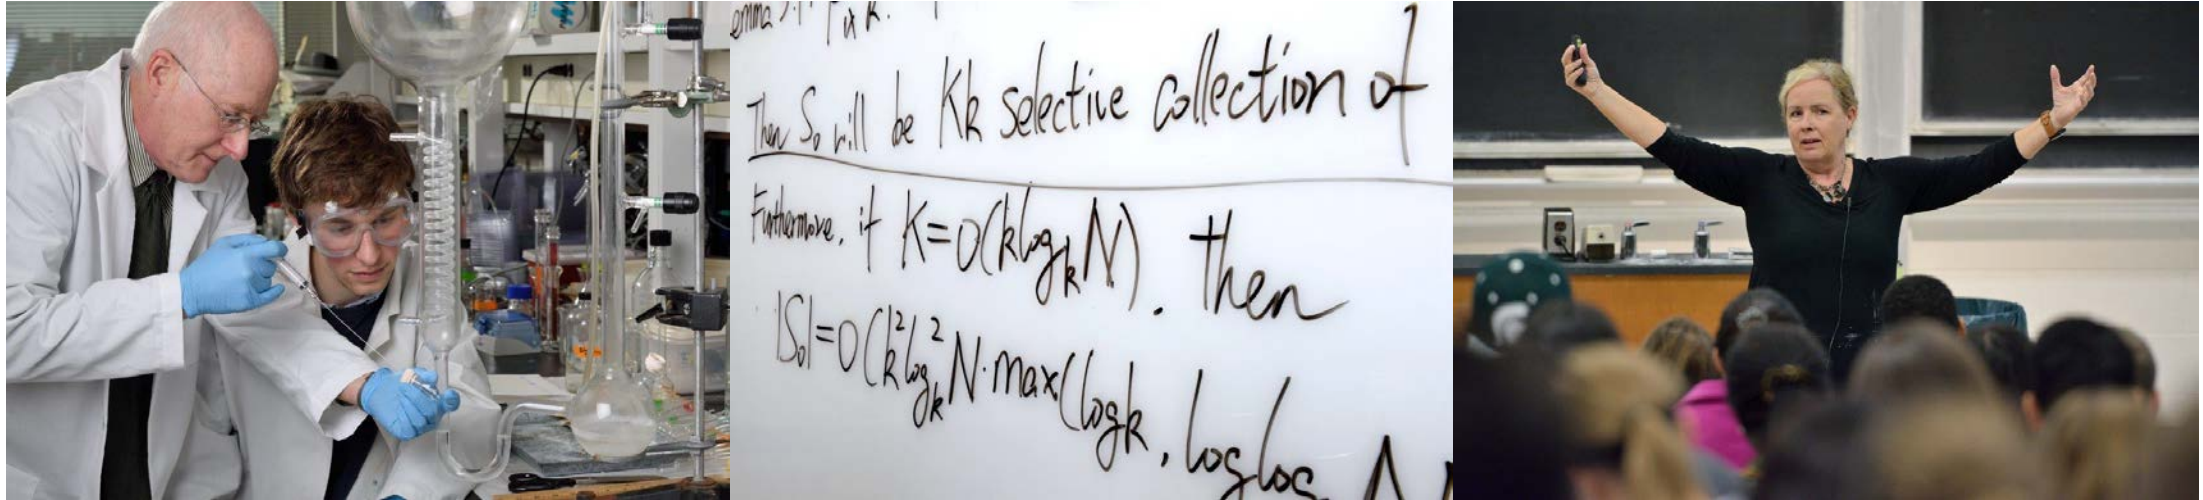 Then S₀ will be Kk selective collection of
Furthermore, if K=O(k log_k N). then
|S₀|=O(k² log²_k N·max(log k, log log